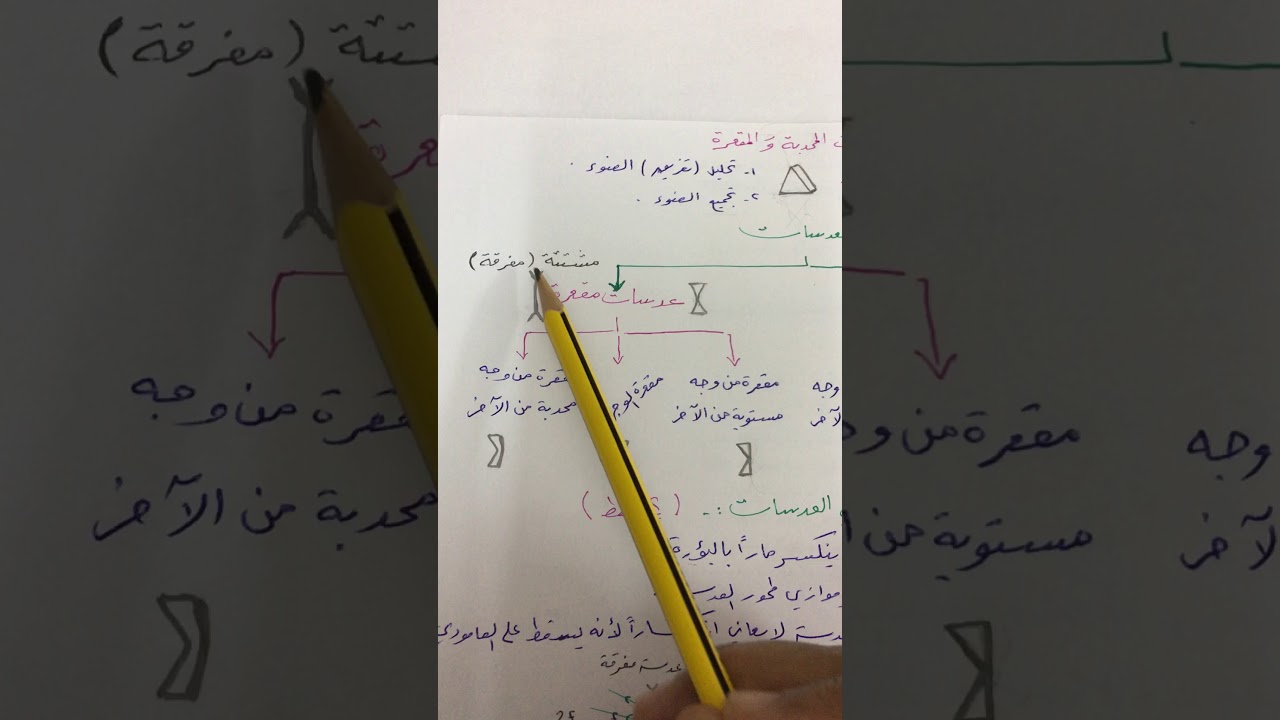 المحدبة و المقعرة
١- تحليل (تفريق) الضوء .
٢- تجميع الضوء .
مشتتة (مفرقة)
عدسات مقعرة
مقعرة من وجه
مستوية من الآخر
مقعرة الوجه
مقعرة من وجه
محدبة من الآخر
وجه
الآخر
العدسات :-
ينكسر ماراً بالبؤرة
موازي لمحور
لا يعاني لأنه يسقط على العامودي
عدسة مفرقة
2F